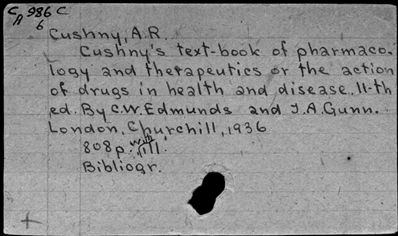 CA 986 C
6
Cushny, A.R.
Cushny's text-book of pharmaco-
logy and therapeutics or the action
of drugs in health and disease. 11-th
ed. By C.W. Edmunds and J.A. Gunn.
London, Churchill, 1936
808 p. with ill.
Bibliogr.